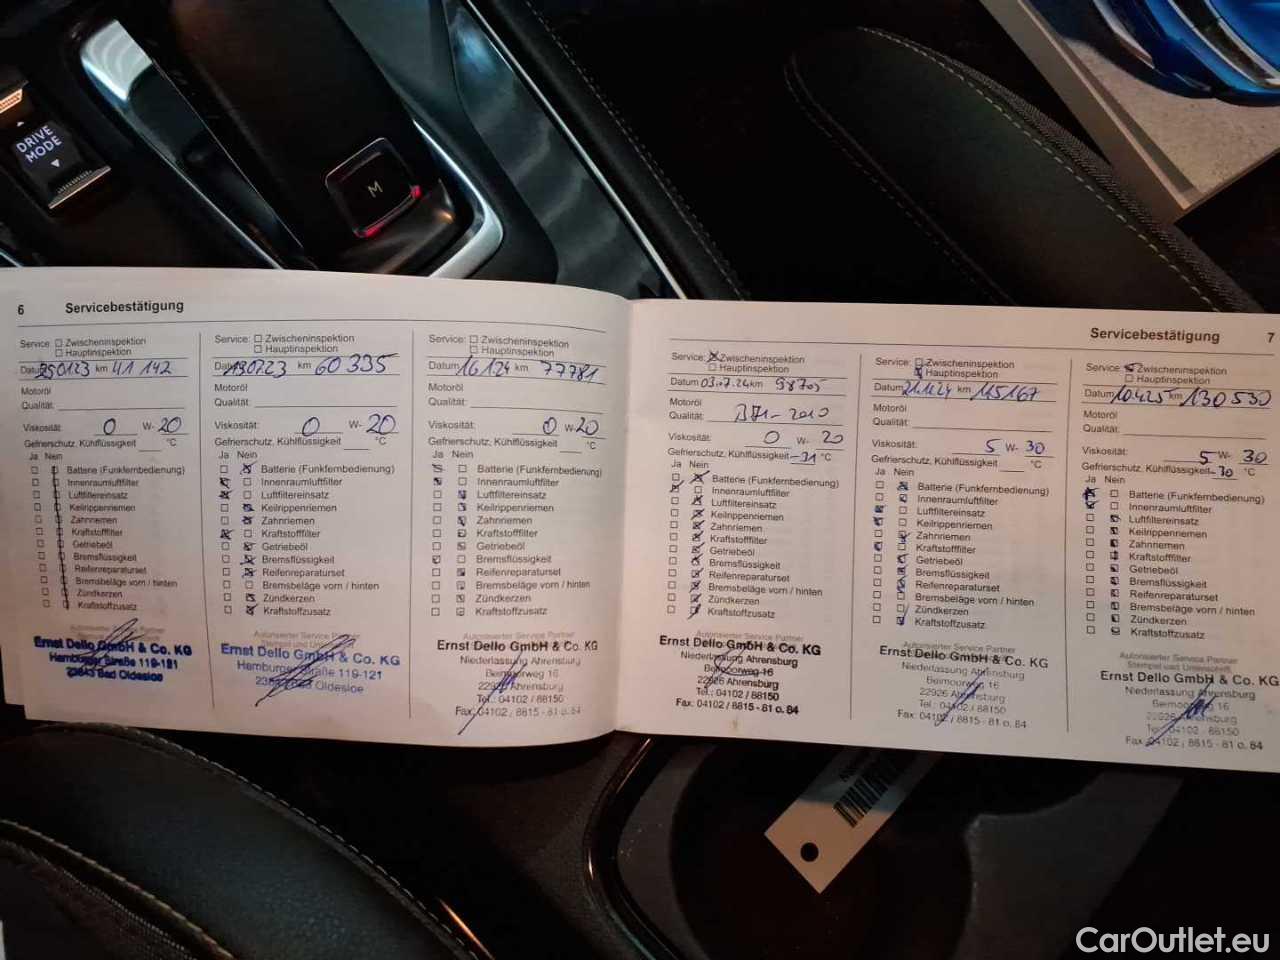 DRIVE
MODE
M
6 Servicebestätigung
Service: Zwischeninspektion
Hauptinspektion
Datum 250123 km 41 142
Motoröl
Qualität:
Viskosität: 0 W- 20
Gefrierschutz, Kühlflüssigkeit °C
Ja Nein
Batterie (Funkfernbedienung)
Innenraumluftfilter
Luftfiltereinsatz
Keilrippenriemen
Zahnriemen
Kraftstofffilter
Getriebeöl
Bremsflüssigkeit
Reifenreparaturset
Bremsbeläge vorn / hinten
Zündkerzen
Kraftstoffzusatz
Autorisierter Service Partner
Ernst Dello GmbH & Co. KG
Hamburger Straße 119-121
23843 Bad Oldesloe
Service: Zwischeninspektion
Hauptinspektion
Datum 190723 km 60 335
Motoröl
Qualität:
Viskosität: 0 W- 20
Gefrierschutz, Kühlflüssigkeit °C
Ja Nein
Batterie (Funkfernbedienung)
Innenraumluftfilter
Luftfiltereinsatz
Keilrippenriemen
Zahnriemen
Kraftstofffilter
Getriebeöl
Bremsflüssigkeit
Reifenreparaturset
Bremsbeläge vorn / hinten
Zündkerzen
Kraftstoffzusatz
Autorisierter Service Partner
Stempel und Unterschrift
Ernst Dello GmbH & Co. KG
Hamburger Straße 119-121
23843 Bad Oldesloe
Service: Zwischeninspektion
Hauptinspektion
Datum 160124 km 77781
Motoröl
Qualität:
Viskosität: 0 W- 20
Gefrierschutz, Kühlflüssigkeit °C
Ja Nein
Batterie (Funkfernbedienung)
Innenraumluftfilter
Luftfiltereinsatz
Keilrippenriemen
Zahnriemen
Kraftstofffilter
Getriebeöl
Bremsflüssigkeit
Reifenreparaturset
Bremsbeläge vorn / hinten
Zündkerzen
Kraftstoffzusatz
Autorisierter Service Partner
Ernst Dello GmbH & Co. KG
Niederlassung Ahrensburg
Beimoorweg 16
22926 Ahrensburg
Tel.: 04102 / 88150
Fax: 04102 / 8815 - 81 o. 84
Servicebestätigung 7
Service: Zwischeninspektion
Hauptinspektion
Datum 03.07.24 km 98705
Motoröl
Qualität: B71-2010
Viskosität: 0 W- 20
Gefrierschutz, Kühlflüssigkeit -31 °C
Ja Nein
Batterie (Funkfernbedienung)
Innenraumluftfilter
Luftfiltereinsatz
Keilrippenriemen
Zahnriemen
Kraftstofffilter
Getriebeöl
Bremsflüssigkeit
Reifenreparaturset
Bremsbeläge vorn / hinten
Zündkerzen
Kraftstoffzusatz
Autorisierter Service Partner
Ernst Dello GmbH & Co. KG
Niederlassung Ahrensburg
Beimoorweg 16
22926 Ahrensburg
Tel.: 04102 / 88150
Fax: 04102 / 8815 - 81 o. 84
Service: Zwischeninspektion
Hauptinspektion
Datum km 115167
Motoröl
Qualität:
Viskosität: 5 W- 30
Gefrierschutz, Kühlflüssigkeit °C
Ja Nein
Batterie (Funkfernbedienung)
Innenraumluftfilter
Luftfiltereinsatz
Keilrippenriemen
Zahnriemen
Kraftstofffilter
Getriebeöl
Bremsflüssigkeit
Reifenreparaturset
Bremsbeläge vorn / hinten
Zündkerzen
Kraftstoffzusatz
Autorisierter Service Partner
Ernst Dello GmbH & Co. KG
Niederlassung Ahrensburg
Beimoorweg 16
22926 Ahrensburg
Tel.: 04102 / 88150
Fax: 04102 / 8815 - 81 o. 84
Service: Zwischeninspektion
Hauptinspektion
Datum 10.4.25 km 130 530
Motoröl
Qualität:
Viskosität: 5 W- 30
Gefrierschutz, Kühlflüssigkeit -30 °C
Ja Nein
Batterie (Funkfernbedienung)
Innenraumluftfilter
Luftfiltereinsatz
Keilrippenriemen
Zahnriemen
Kraftstofffilter
Getriebeöl
Bremsflüssigkeit
Reifenreparaturset
Bremsbeläge vorn / hinten
Zündkerzen
Kraftstoffzusatz
Autorisierter Service Partner
Stempel und Unterschrift
Ernst Dello GmbH & Co. KG
Niederlassung Ahrensburg
Beimoorweg 16
22926 Ahrensburg
Tel.: 04102 - 88150
Fax: 04102 / 8815 - 81 o. 84
CarOutlet.eu